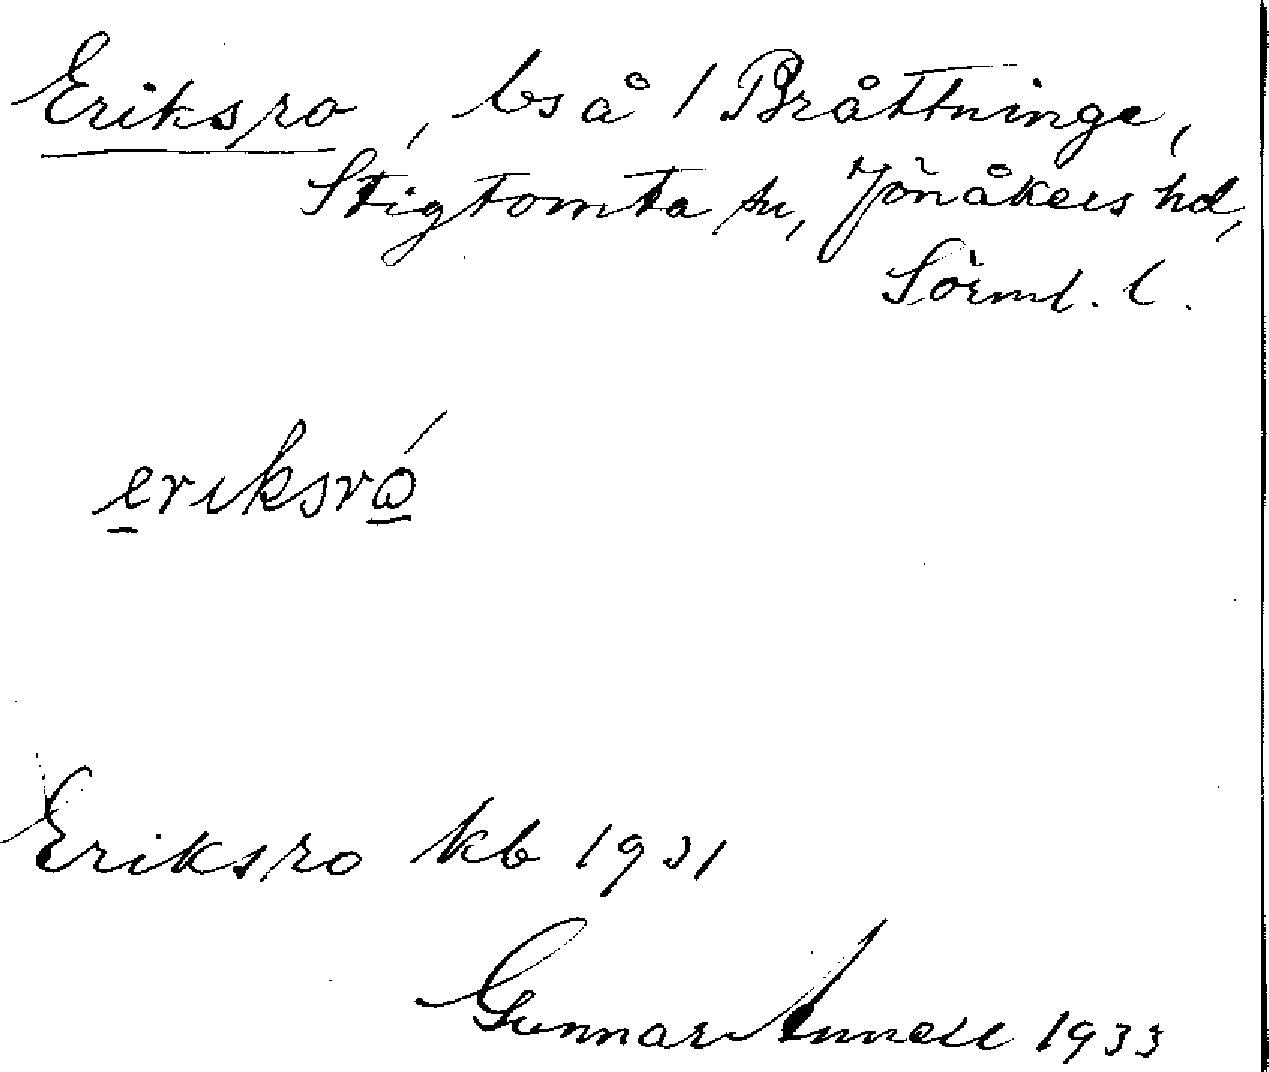 Eriksro, bs å / Bråttninge,
Stigtomta sn, Jönåkers hd,
Sörml. l.
eriksró
Eriksro kb 1931
Gunnar Annell 1933